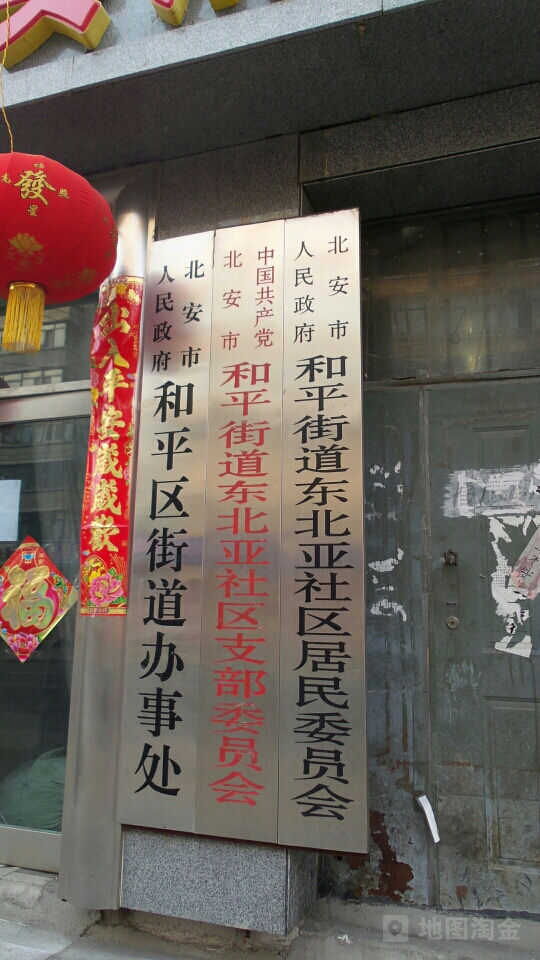 發
福
出入平安歲歲歡
北安市
人民政府
和平区街道办事处
中国共产党
北安市
和平街道东北亚社区支部委员会
北安市
人民政府
和平街道东北亚社区居民委员会
地图淘金